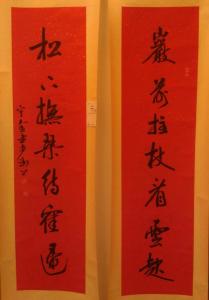 巖前拄杖看雲起
松下撫琴待寉還